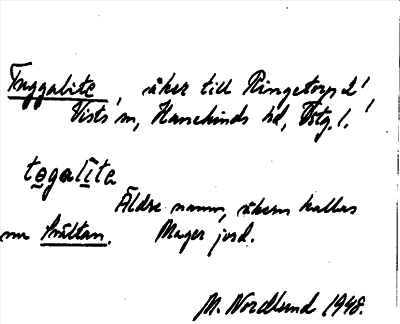 Tuggalite, åker till Ringetorp 2!
Vists sn, Hanekinds hd, Östg. l.!
təgalìta
Äldre namn, åkern kallas
nu Prältan. Mager jord.
M. Nordlund 1948.